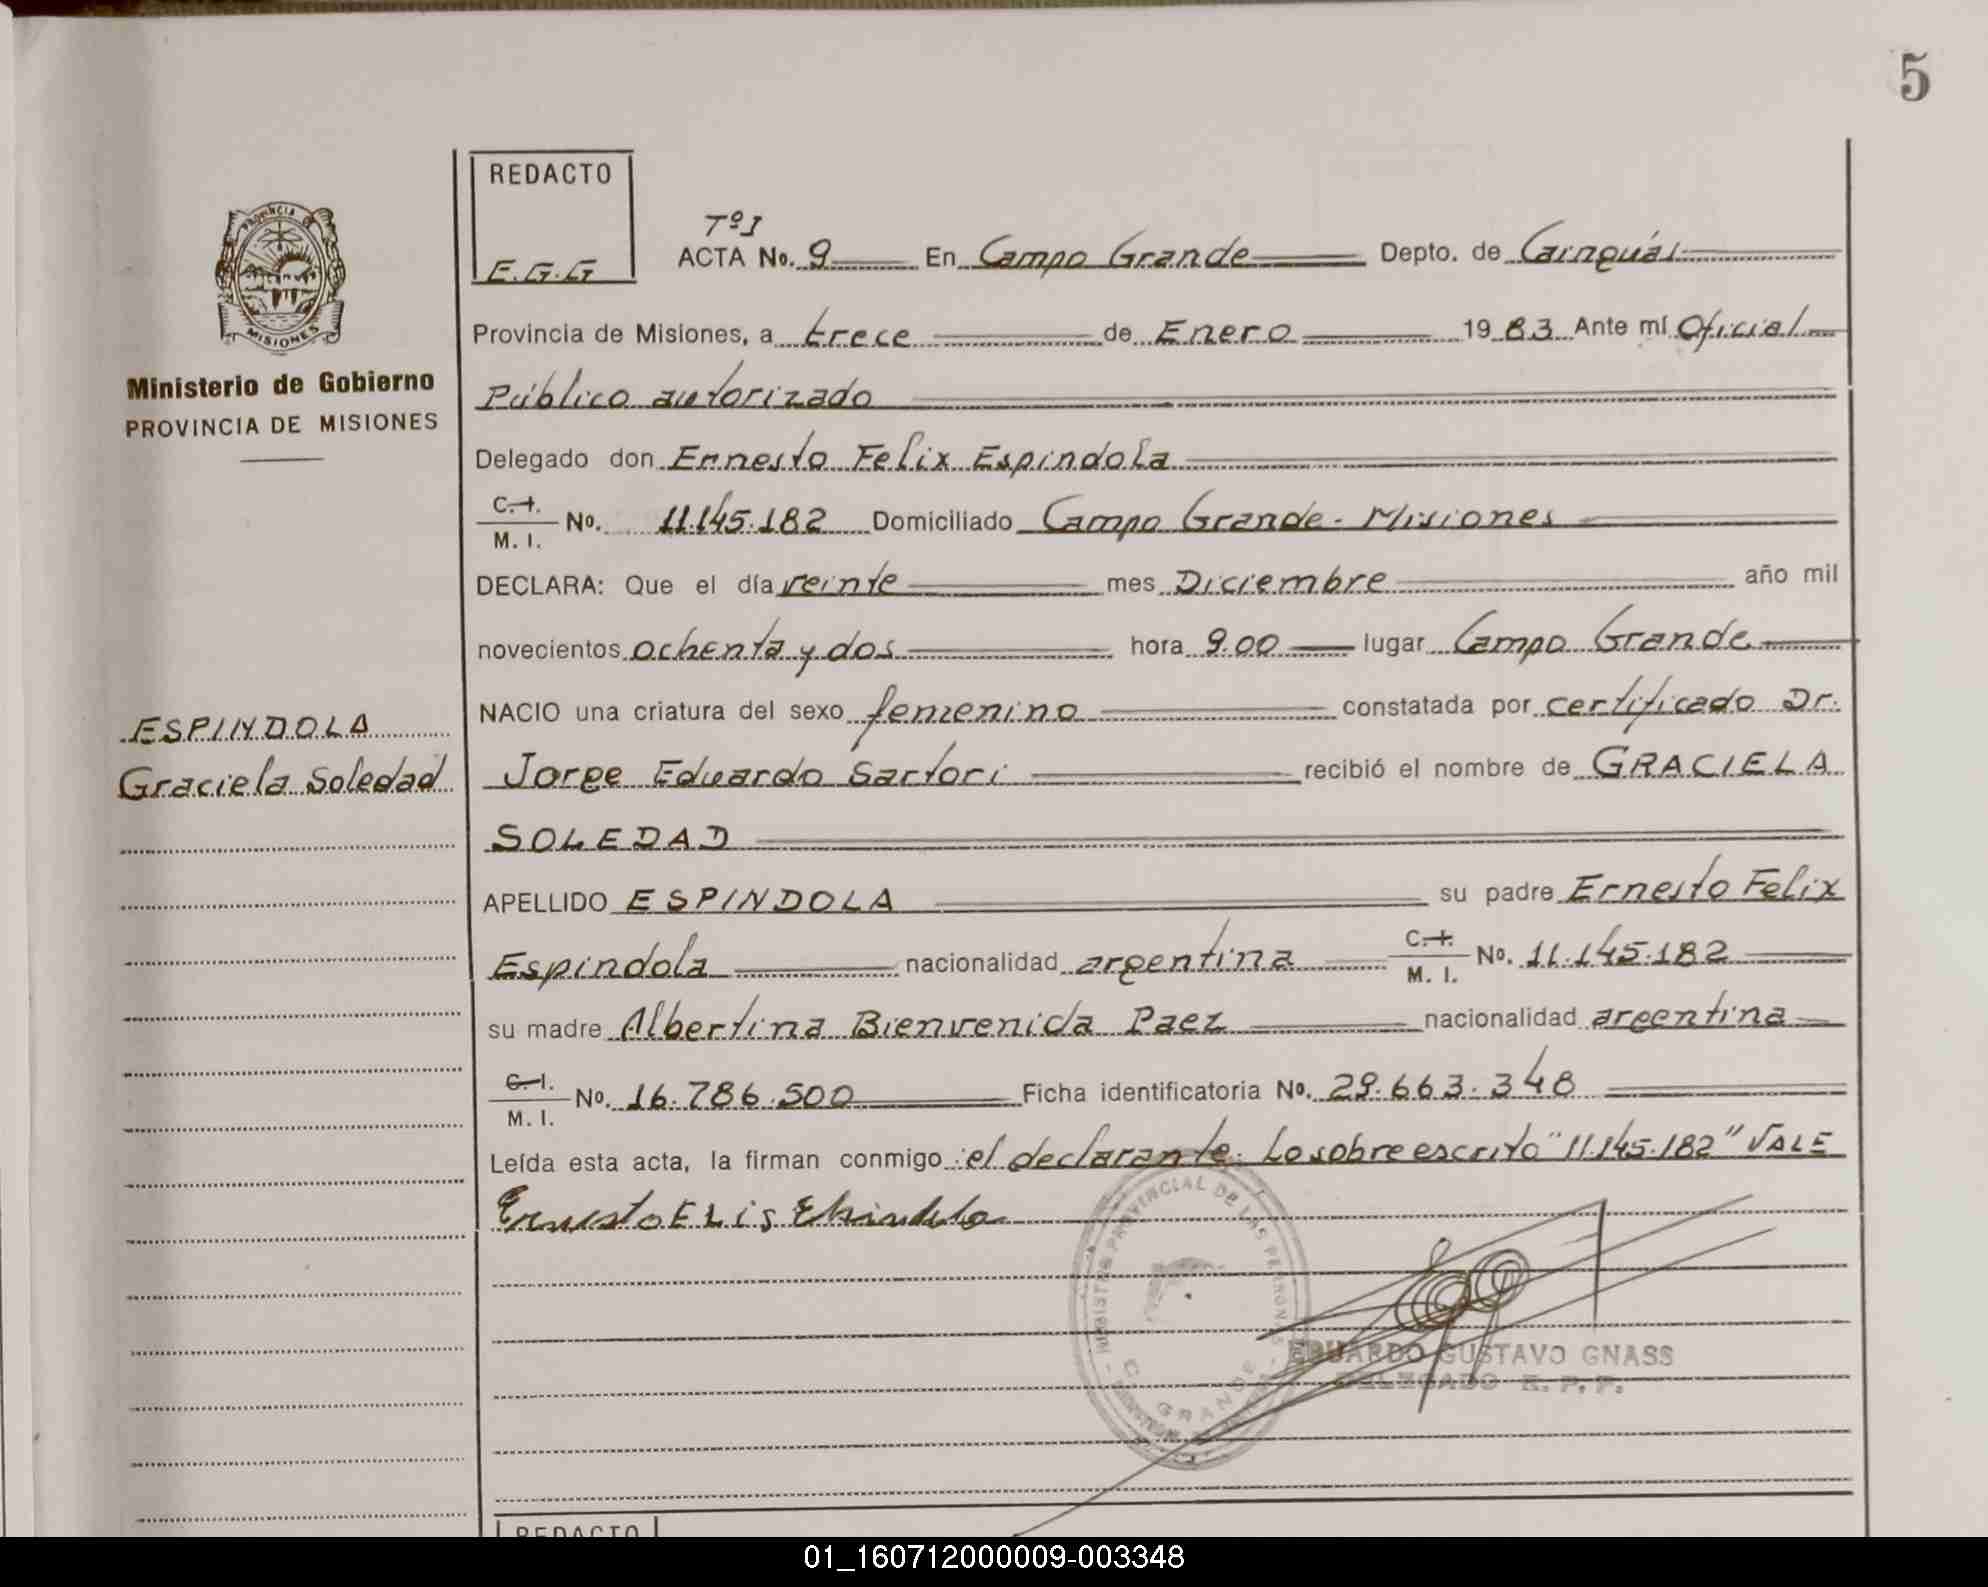 5
REDACTO
E.G.G
PROVINCIA D
MISIONES
Ministerio de Gobierno
PROVINCIA DE MISIONES
Tº I
ACTA No. 9 En Campo Grande Depto. de Cainguás
Provincia de Misiones, a trece de Enero 1983 Ante mí Oficial
Público autorizado
Delegado don Ernesto Felix Espindola
C. I. / M. I. No. 11.145.182 Domiciliado Campo Grande - Misiones
DECLARA: Que el día veinte mes Diciembre año mil
novecientos ochenta y dos hora 9.00 lugar Campo Grande
NACIO una criatura del sexo femenino constatada por certificado Dr.
ESPINDOLA
Graciela Soledad
Jorge Eduardo Sartori recibió el nombre de GRACIELA
SOLEDAD
APELLIDO ESPINDOLA su padre Ernesto Felix
Espindola nacionalidad argentina C. I. / M. I. No. 11.145.182
su madre Albertina Bienvenida Paez nacionalidad argentina
C. I. / M. I. No. 16.786.500 Ficha identificatoria No. 29.663.348
Leída esta acta, la firman conmigo el declarante. Lo sobre escrito "11.145.182" VALE
Ernesto
REGISTRO PROVINCIAL DE LAS PERSONAS
C. GRANDE
EDUARDO GUSTAVO GNASS
DELEGADO R. P. P.
REDACTO
01_160712000009-003348